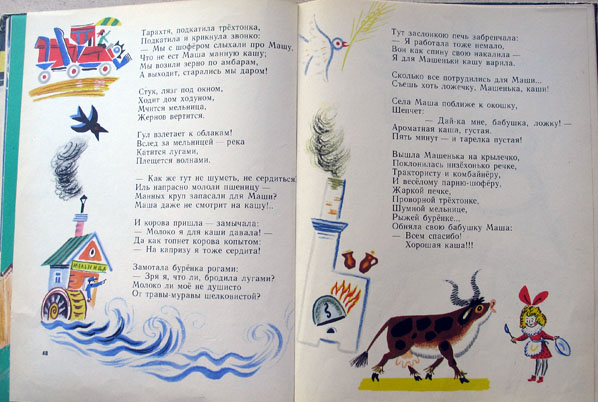 Тарахтя, подкатила трёхтонка,
Подкатила и крикнула звонко:
— Мы с шофёром слыхали про Машу,
Что не ест Маша манную кашу;
Мы возили зерно по амбарам,
А выходит, старались мы даром!
Стук, лязг под окном,
Ходит дом ходуном,
Мчится мельница,
Жернов вертится.
Гул взлетает к облакам!
Вслед за мельницей — река
Катится лугами,
Плещется волнами.
— Как же тут не шуметь, не сердиться,
Иль напрасно мололи пшеницу —
Манных круп запасали для Маши?
Маша даже не смотрит на кашу!..
И корова пришла — замычала:
— Молоко я для каши давала! —
Да как топнет корова копытом:
— На капризу я тоже сердита!
Замотала бурёнка рогами:
— Зря я, что ли, бродила лугами?
Молоко ли моё не душисто
От травы-муравы шелковистой?
МЕЛЬНИЦА
48
Тут заслонкою печь забренчала:
— Я работала тоже немало,
Вон как спину свою накалила —
Я для Машеньки кашу варила.
Сколько все потрудились для Маши...
Съешь хоть ложечку, Машенька, каши!
Села Маша поближе к окошку,
Шепчет:
— Дай-ка мне, бабушка, ложку! —
Ароматная каша, густая.
Пять минут — а тарелка пустая!
Вышла Машенька на крылечко,
Поклонилась низёхонько речке,
Трактористу и комбайнёру,
И весёлому парню-шофёру,
Жаркой печке,
Проворной трёхтонке,
Шумной мельнице,
Рыжей бурёнке...
Обняла свою бабушку Маша:
— Всем спасибо!
Хорошая каша!!!